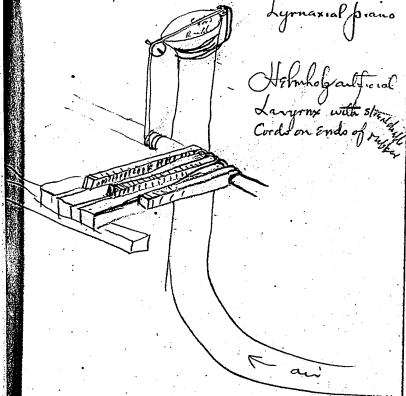 Lyrnaxial piano
Helmholz artificial
Larynx with stretchable
Cords on Ends of rubber
air